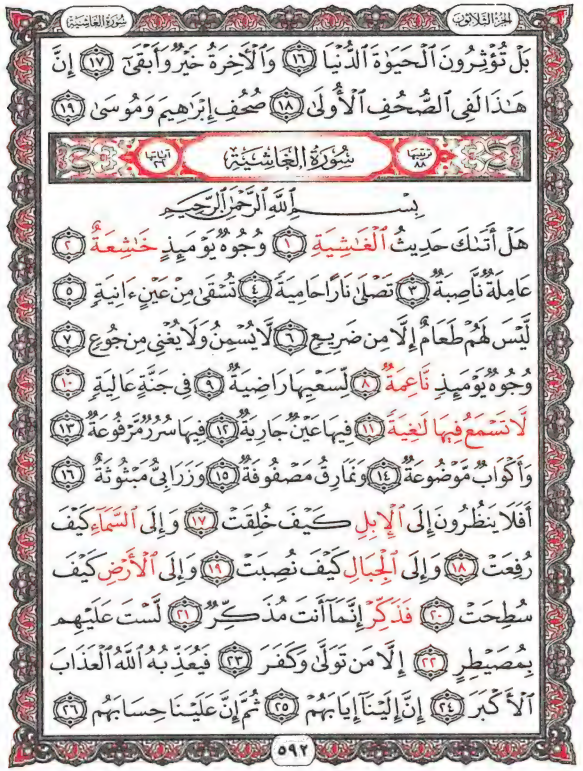 سُورَةُ الْغَاشِيَةِ
الجُزْءُ الثَّلَاثُونَ
بَلْ تُؤْثِرُونَ ٱلْحَيَوٰةَ ٱلدُّنْيَا ١٦ وَٱلْأَخِرَةُ خَيْرٌ وَأَبْقَىٰٓ ١٧ إِنَّ
هَٰذَا لَفِى ٱلصُّحُفِ ٱلْأُولَىٰ ١٨ صُحُفِ إِبْرَاهِيمَ وَمُوسَىٰ ١٩
ترتيبها ٨٨
سُورَةُ الْغَاشِيَةِ
آياتها ٢٦
بِسْمِ ٱللَّهِ ٱلرَّحْمَٰنِ ٱلرَّحِيمِ
هَلْ أَتَىٰكَ حَدِيثُ ٱلْغَٰشِيَةِ ١ وُجُوهٌ يَوْمَئِذٍ خَٰشِعَةٌ ٢
عَامِلَةٌ نَّاصِبَةٌ ٣ تَصْلَىٰ نَارًا حَامِيَةً ٤ تُسْقَىٰ مِنْ عَيْنٍ ءَانِيَةٍ ٥
لَّيْسَ لَهُمْ طَعَامٌ إِلَّا مِن ضَرِيعٍ ٦ لَّا يُسْمِنُ وَلَا يُغْنِى مِن جُوعٍ ٧
وُجُوهٌ يَوْمَئِذٍ نَّاعِمَةٌ ٨ لِّسَعْيِهَا رَاضِيَةٌ ٩ فِى جَنَّةٍ عَالِيَةٍ ١٠
لَّا تَسْمَعُ فِيهَا لَٰغِيَةً ١١ فِيهَا عَيْنٌ جَارِيَةٌ ١٢ فِيهَا سُرُرٌ مَّرْفُوعَةٌ ١٣
وَأَكْوَابٌ مَّوْضُوعَةٌ ١٤ وَنَمَارِقُ مَصْفُوفَةٌ ١٥ وَزَرَابِىُّ مَبْثُوثَةٌ ١٦
أَفَلَا يَنظُرُونَ إِلَى ٱلْإِبِلِ كَيْفَ خُلِقَتْ ١٧ وَإِلَى ٱلسَّمَآءِ كَيْفَ
رُفِعَتْ ١٨ وَإِلَى ٱلْجِبَالِ كَيْفَ نُصِبَتْ ١٩ وَإِلَى ٱلْأَرْضِ كَيْفَ
سُطِحَتْ ٢٠ فَذَكِّرْ إِنَّمَآ أَنتَ مُذَكِّرٌ ٢١ لَّسْتَ عَلَيْهِم
بِمُصَيْطِرٍ ٢٢ إِلَّا مَن تَوَلَّىٰ وَكَفَرَ ٢٣ فَيُعَذِّبُهُ ٱللَّهُ ٱلْعَذَابَ
ٱلْأَكْبَرَ ٢٤ إِنَّ إِلَيْنَآ إِيَابَهُمْ ٢٥ ثُمَّ إِنَّ عَلَيْنَا حِسَابَهُم ٢٦
٥٩٢